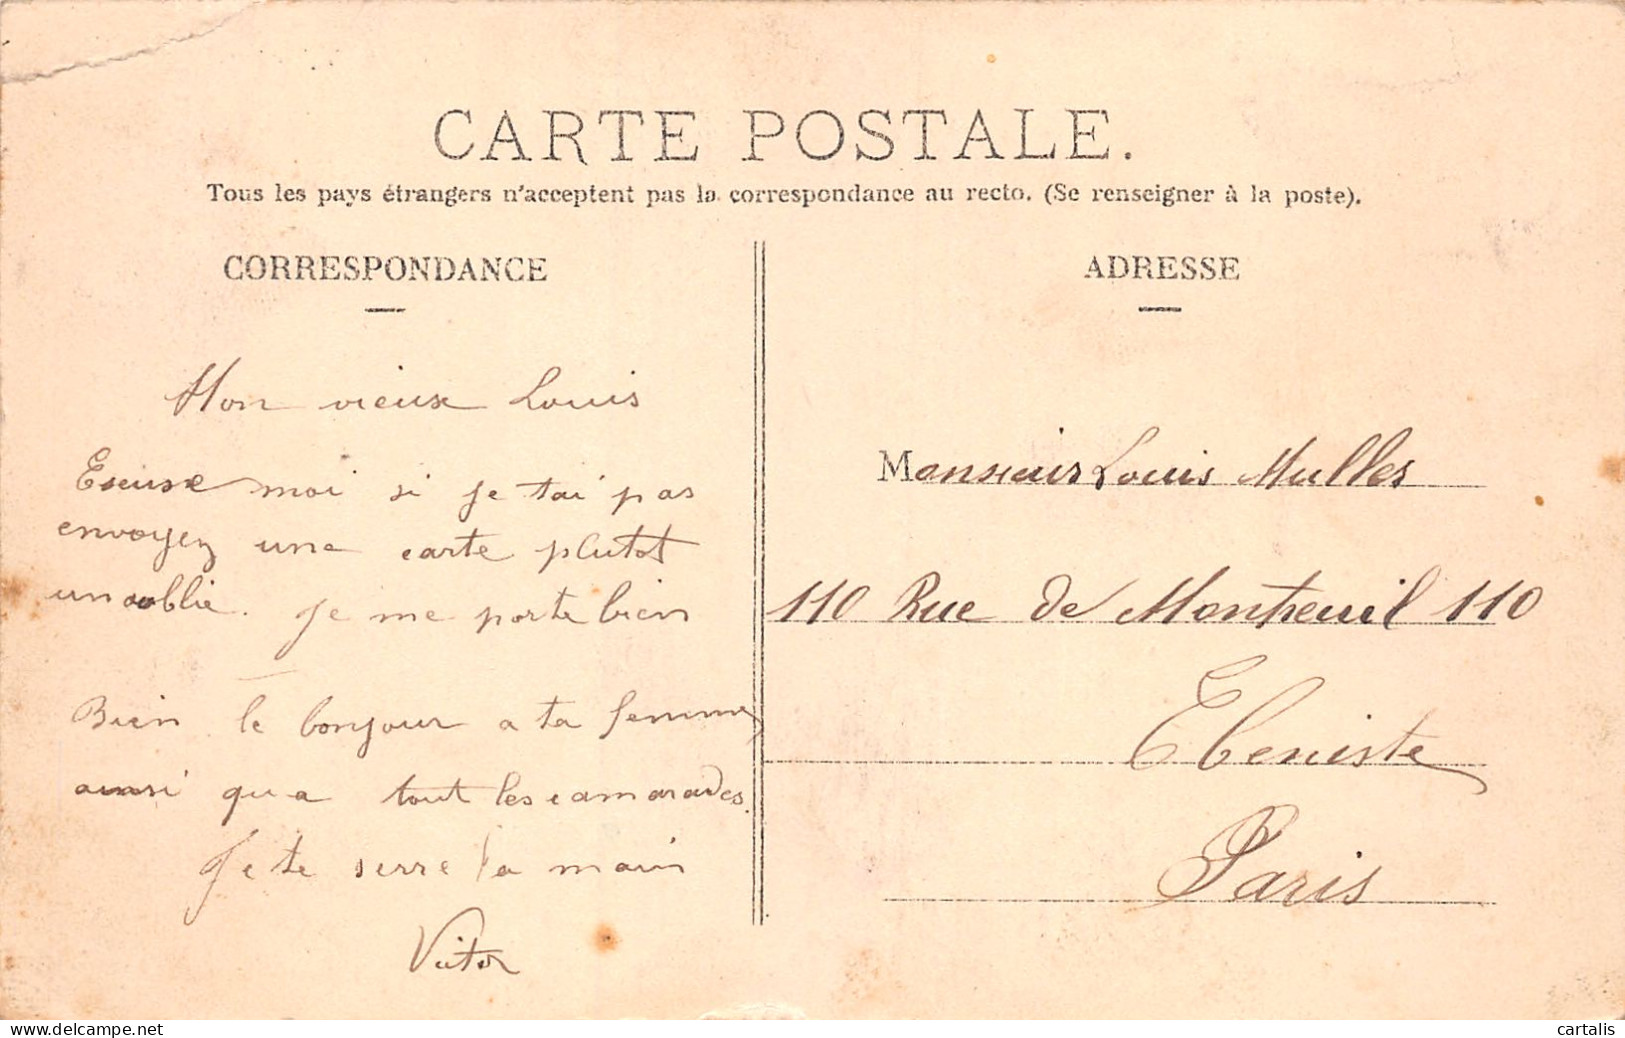 CARTE POSTALE.
Tous les pays étrangers n'acceptent pas la correspondance au recto. (Se renseigner à la poste).
CORRESPONDANCE
Mon vieux Louis
Excuse moi si je tai pas
envoyez une carte plutot
un oublie. Je me porte bien
Bien le bonjour a ta femme
ainsi qua tout les camarades.
Je te serre la main
Victor
ADRESSE
Monsieur Louis Mulles
110 Rue de Montreuil 110
Ebeniste
Paris
www.delcampe.net
cartalis